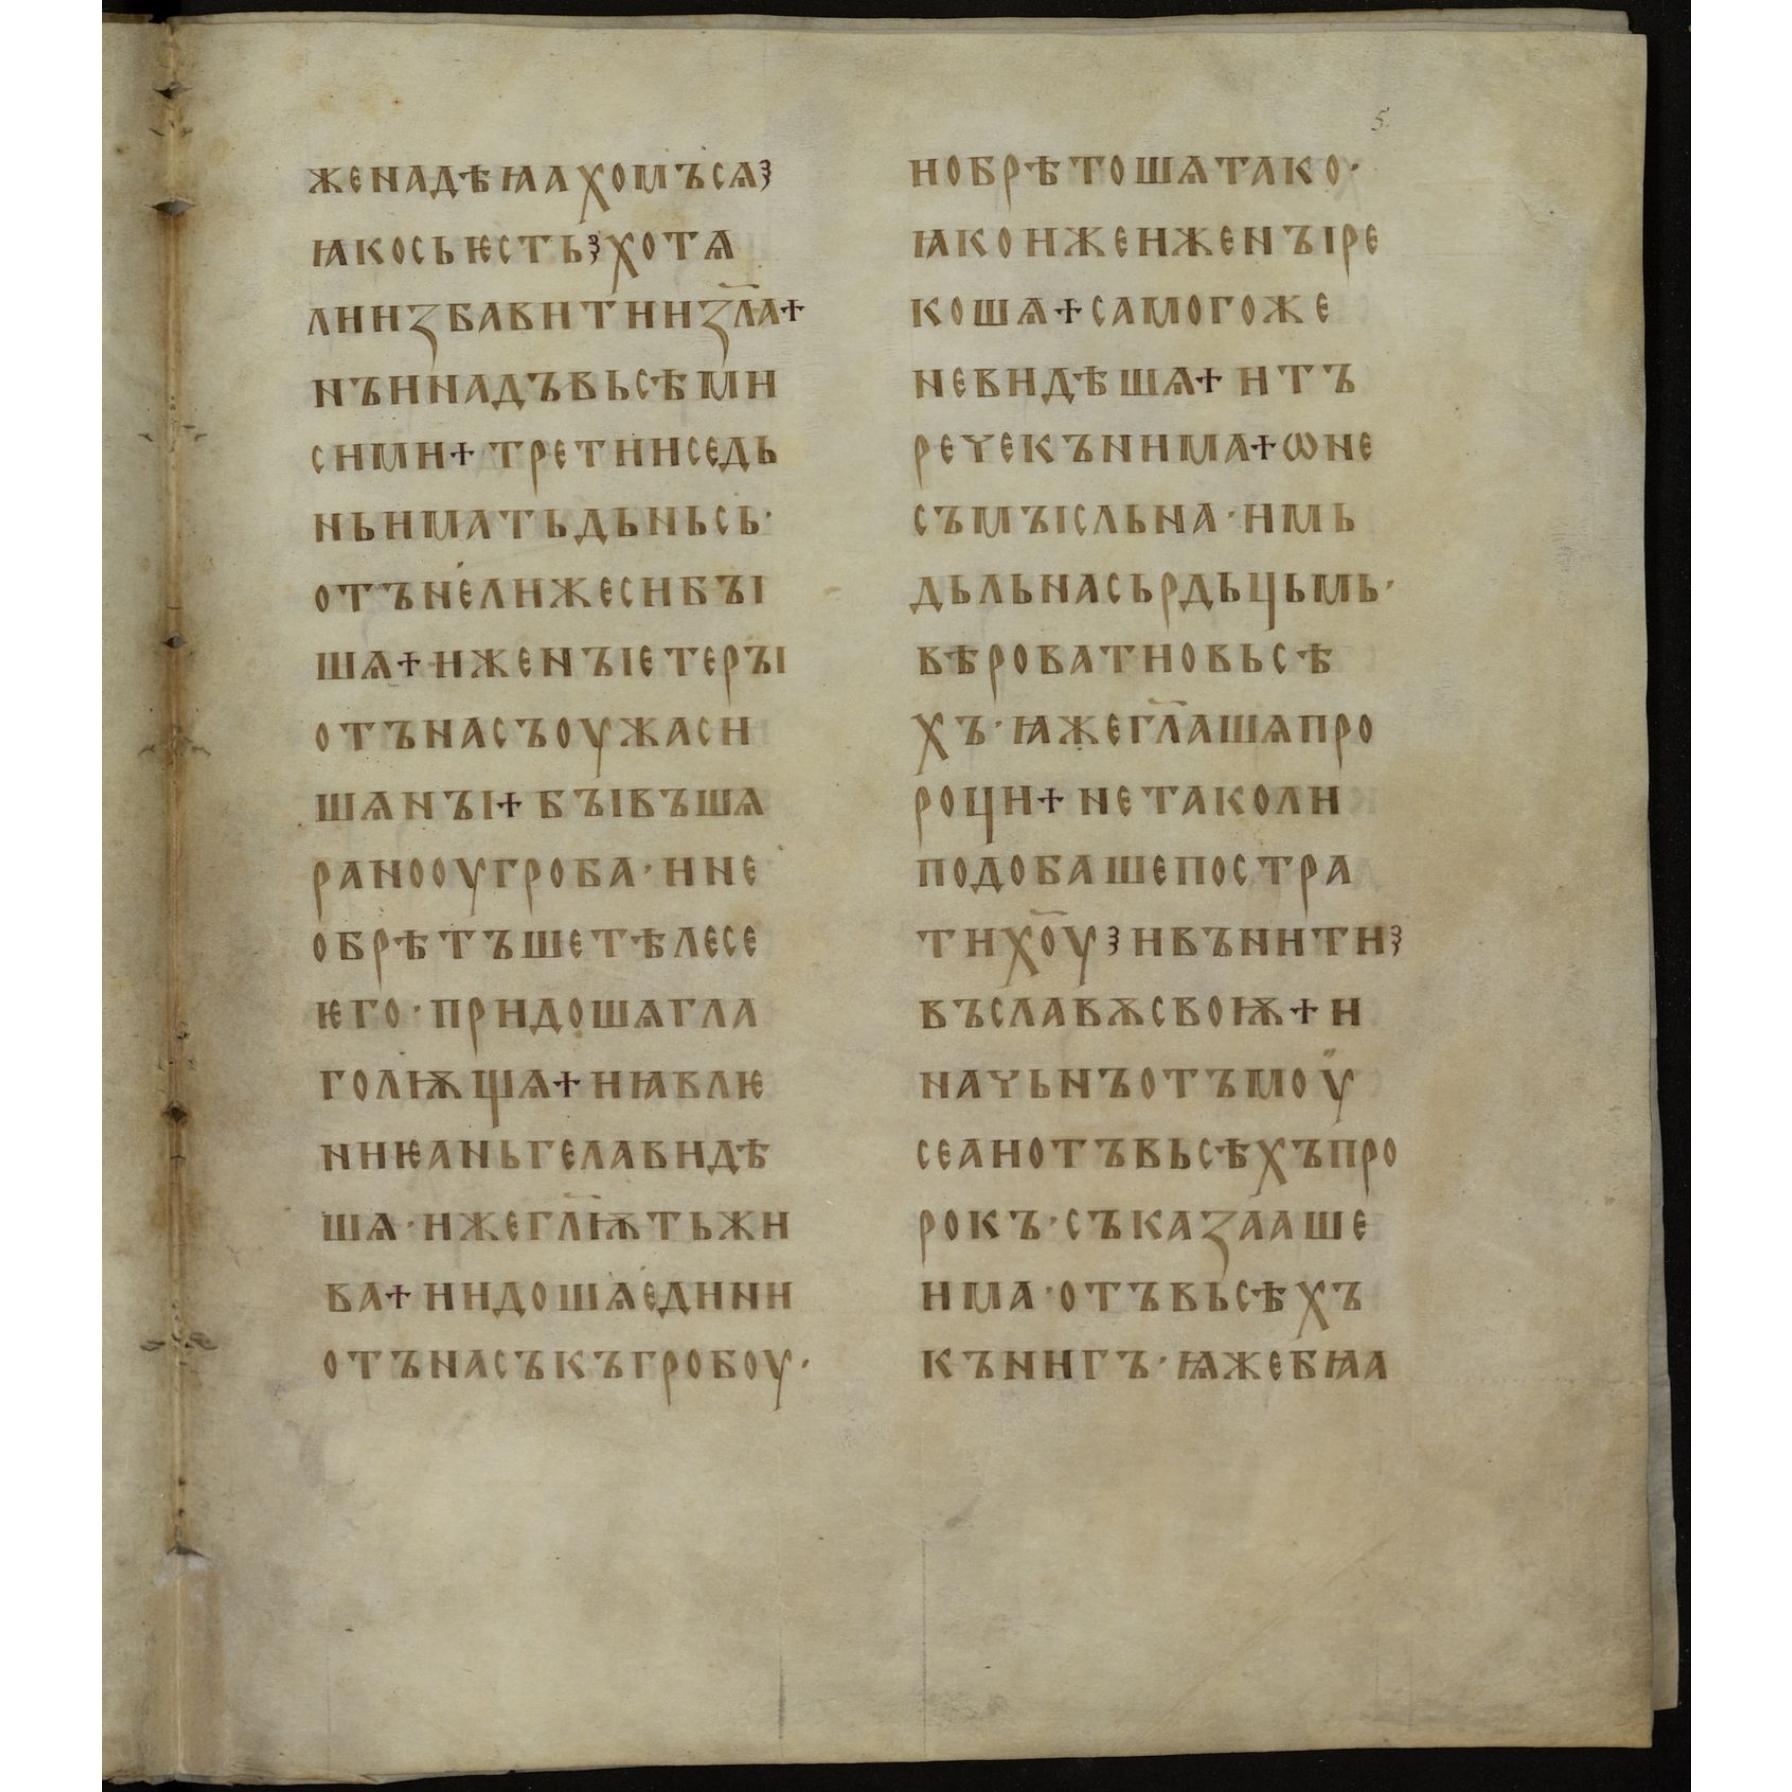 5.
женадѣꙗахомъсѧ҅
ꙗкосьѥсть҅хотѧ
лиизбавитииз꙯ла+
нъинадъвьсѣми
сими+третиіиседь
ньиматьдьньсь·
отънелижесибъі
шѧ+иженъіетеръі
отънасъоужаси
шѧнъі+бъівъшѧ
ранооугроба·ине
обрѣтъшетѣлесе
ѥго·придошѧгла
голѭщѧ+иꙗвлѥ
ниѥаньгелавидѣ
шѧ·ижегл҃ѭтьжи
ва+иидошѧедини
отънасъкъгробоу·
иобрѣтошѧтако·
ꙗкоижеиженъіре
кошѧ+самогоже
невидѣшѧ+итъ
речекънима+ѡне
съмъісльна·имь
дьльнасьрдьцьмь·
вѣроватиовьсѣ
хъ·ꙗжегл҃ашѧпро
роци+нетаколи
подобашепостра
тихо҃у҅ивънити҅
въславѫсвоѭ+и
начьнъотъмоу
сеаиотъвьсѣхъпро
рокъ·съказааше
има·отъвьсѣхъ
кънигъ·ꙗжебꙗа